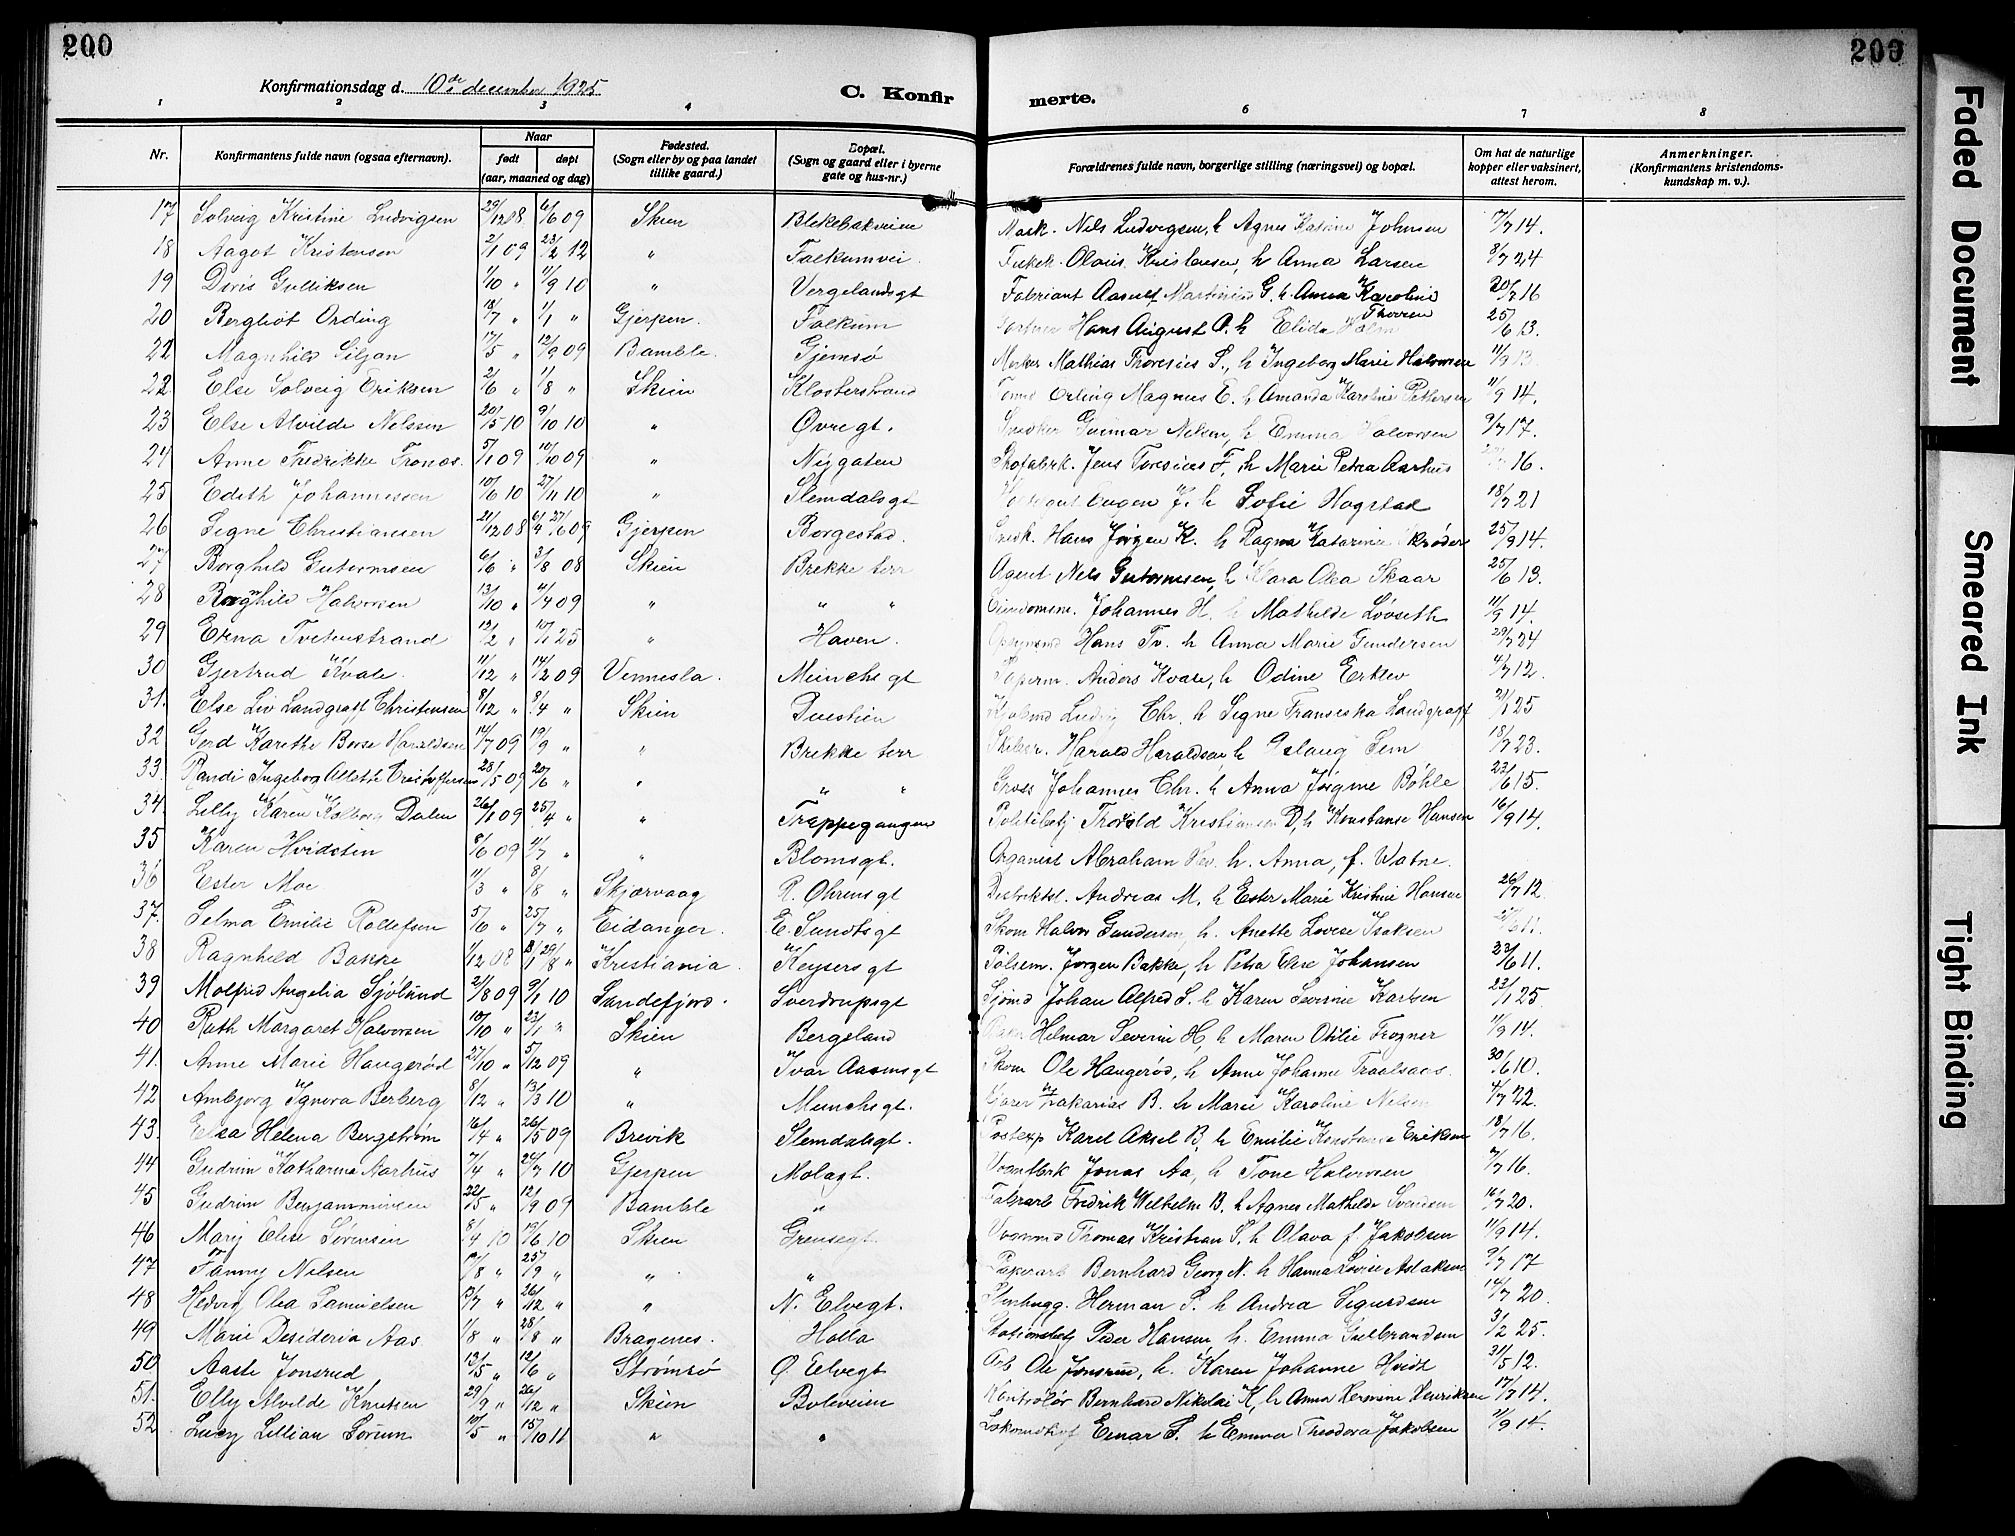 200
200
Konfirmationsdag d. 10de december 1925
C. Konfir merte.
1 2 3 4 6 7 8
Nr.
Konfirmantens fulde navn (ogsaa efternavn).
Naar
født døpt
(aar, maaned og dag)
Fødested.
(Sogn eller by og paa landet
tillike gaard.)
Bopæl.
(Sogn og gaard eller i byerne
gate og hus-nr.)
Forældrenes fulde navn, borgerlige stilling (næringsvei) og bopæl.
Om hat de naturlige
kopper eller vaksinert,
attest herom.
Anmerkninger.
(Konfirmantens kristendoms-
kundskap m. v.).
17 Solveig Kristine Ludvigsen 29/12 08 6/6 09 Skien Blekebakveien Mask. Nils Ludvigsen, h Agnes Katrine Johnsen 7/7 14.
18 Aagot Kristensen 2/1 09 23/2 12 " Falkumvei Olaus Kristensen, h Anna Larsen 8/7 24
19 Doris Gulliksen 1/10 " 11/9 10 " Vergelandsgt Fabriant Aasulf Martinius G. h. Anna Karoline Thoresen 20/7 16
20 Bergliot Ording 18/7 " 1/1 " Gjerpen. Falkum Hans August O. h Elida Holm 25/6 13.
22 Magnhild Siljan 17/5 " 12/9 09 Bamble. Gjemsø Mathias Thoresius S., h Ingeborg Marie Halvorsen 11/9 13
22 Else Solveig Eriksen 2/6 " 1/8 " Skien Klosterstrand Erling Magnus E. h Amanda Karoline Pettersen 11/9 14.
23 Else Alvilde Nelssen 20/5 10 9/10 10 " Øvregt. Snedker Gunnar Nelsen, h Emma Halvorsen 9/7 17.
24 Anne Fredrikke Fronæs 5/1 09 10/10 09 " Nygaten Skofabrk. Jens Toresius F. h Marie Petra Aarhus 16.
25 Edith Johannessen 10/6 10 27/11 10 " Slemdalsgt Eugen J. h Sofie Hogstad 18/7 21
26 Signe Christiansen 21/12 08 6/4 27/6 09 Gjerpen Borgestad. Hans Jørgen K. h Ragna Katarina Skrøder 25/9 14.
27 Borghild Gutormsen 6/6 " 3/8 08 Skien Brekke terr Agent Nels Gutormsen, h Klara Olea Skaar 25/6 13.
28 Ragnhild Halvorsen 13/10 " 4/4 09 " " " Eiendomsm. Johannes H. h Mathilde Løvseth 11/9 14.
29 Erna Tvetenstrand 13/2 " 10/1 25 " Haven. Hans Tv. h Anna Marie Gundersen 29/7 24
30 Gjertrud Kvale. 11/12 " 14/2 09 Vennesla. Munchsgt Paperm. Anders Kvale, h Odine Erklev 4/7 12.
31. Else Liv Landgraff Christensen 8/12 " 8/4 " Skien Duestien Ludvig Chr. h Signe Franciska Landgraff 21/1 25
32 Gerd Karethe Borse Haraldsen 14/7 09 19/9 " " Brekke terr Harald Haraldsen, h Aslaug Sem 18/7 23.
33. Randi Ingeborg Allette Cristoffersen 28/5 09 20/6 " " " " Gross Johannes Chr. h Anna Jørgine Bøhle 23/6 15.
34. Lilly Karen Kolberg Dalen 26/1 09 25/4 " " Trappegangen Politibetj Thorvald Kristiansen D, h Konstanse Hansen 16/9 14.
35 Karen Hvidsten 8/6 09 4/7 " " Blomsgt. Organist Abraham Hv. h. Anna, f. Watne.
36 Ester Moe 11/3 " 8/8 " Skjærvaag R. Øhrensgt Distriktsl. Andreas M. h Ester Marie Kristine Hansen 26/7 12.
37. Selma Emilie Rollefsen 5/6 " 25/7 " Eidanger. E. Sundtsgt Skom Halvor Gundersen h Anette Lovise Isaksen 11.
38 Ragnhild Bakke 1/12 08 3/1 29/8 " Kristiania. Keysersgt Pølsem. Jørgen Bakke, h Petra Elise Johansen 23/6 11.
39 Molfrid Angelia Sjølund 21/8 09 9/1 10 Sandefjord. Sverdrupsgt Sjømd Johan Alfred S. h Karen Severine Karlsen 23/1 25.
40 Ruth Margaret Halvorsen 10/10 " 23/1 " Skien Bergeland Helmar Severin H, h Maren Otilie Frogner 11/9 14.
41. Anne Marie Haugerød 27/10 " 5/12 09 " Ivar Aasensgt Skom Ole Haugerød, h Anne Johanne Traalsaas. 30/6 10.
42 Ambjørg Ignora Berberg 8/12 " 13/3 10 " Munchsgt. Zakarias B. h Marie Karoline Nilsen 4/7 22.
43. Elsa Helena Bergstrøm 6/4 " 26/5 09 Brevik Slemdalsgt. Postexp Karel Aksel B. h Emilie Konstance Eriksen 18/7 16.
44 Gudrun Katharina Aarhus 7/4 " 24/7 10 Gjerpen Molagt. Vognfbrk Jonas Aa, h Tone Halvorsen 7/7 16.
45 Gudrun Benjaminsen 22/5 " 12/9 09 Bamble " Fabrarb Fredrik Welhelm B. h Agnes Mathilde Svendsen 16/7 20.
46 Mary Elise Sørensen 8/4 10 19/6 10 Skien Grensegt. Thomas Kristian S. h Olava f Jakobsen 11/9 14.
47 Fanny Nilsen 17/8 " 25/9 " " " Papirarb Bernhard Georg N. h Hanna Lovise Aslaksen 9/7 17
48 Hedvig Olea Samuelsen 13/7 " 26/12 " " N. Elvegt. Stenhugg. Herman S. h Andrea Sigurdsen 14/7 20.
49 Marie Desideria Aas. 1/8 " 28/8 " Bragenes. Holla Stationsbetj Peder Hansen, h. Emma Gulbrandsen 3/2 25.
50 Aaste Jonsrud 13/5 " 12/6 " Strømsø Ø. Elvegt Arb Ole Jonsrud, h. Karen Johanne Hvidt 31/5 12.
51. Elly Alvilde Knutsen 29/9 " 26/12 " Skien Boleveien Kontrolør Bernhard Nikolai K, h Anna Hermine Henriksen 17/7 14.
52 Lucy Lillian Sørum 10/5 " 15/10 11 " " Einar S. h Emma Theodora Jakobsen 11/9 14.
Faded Document
Smeared Ink
Tight Binding